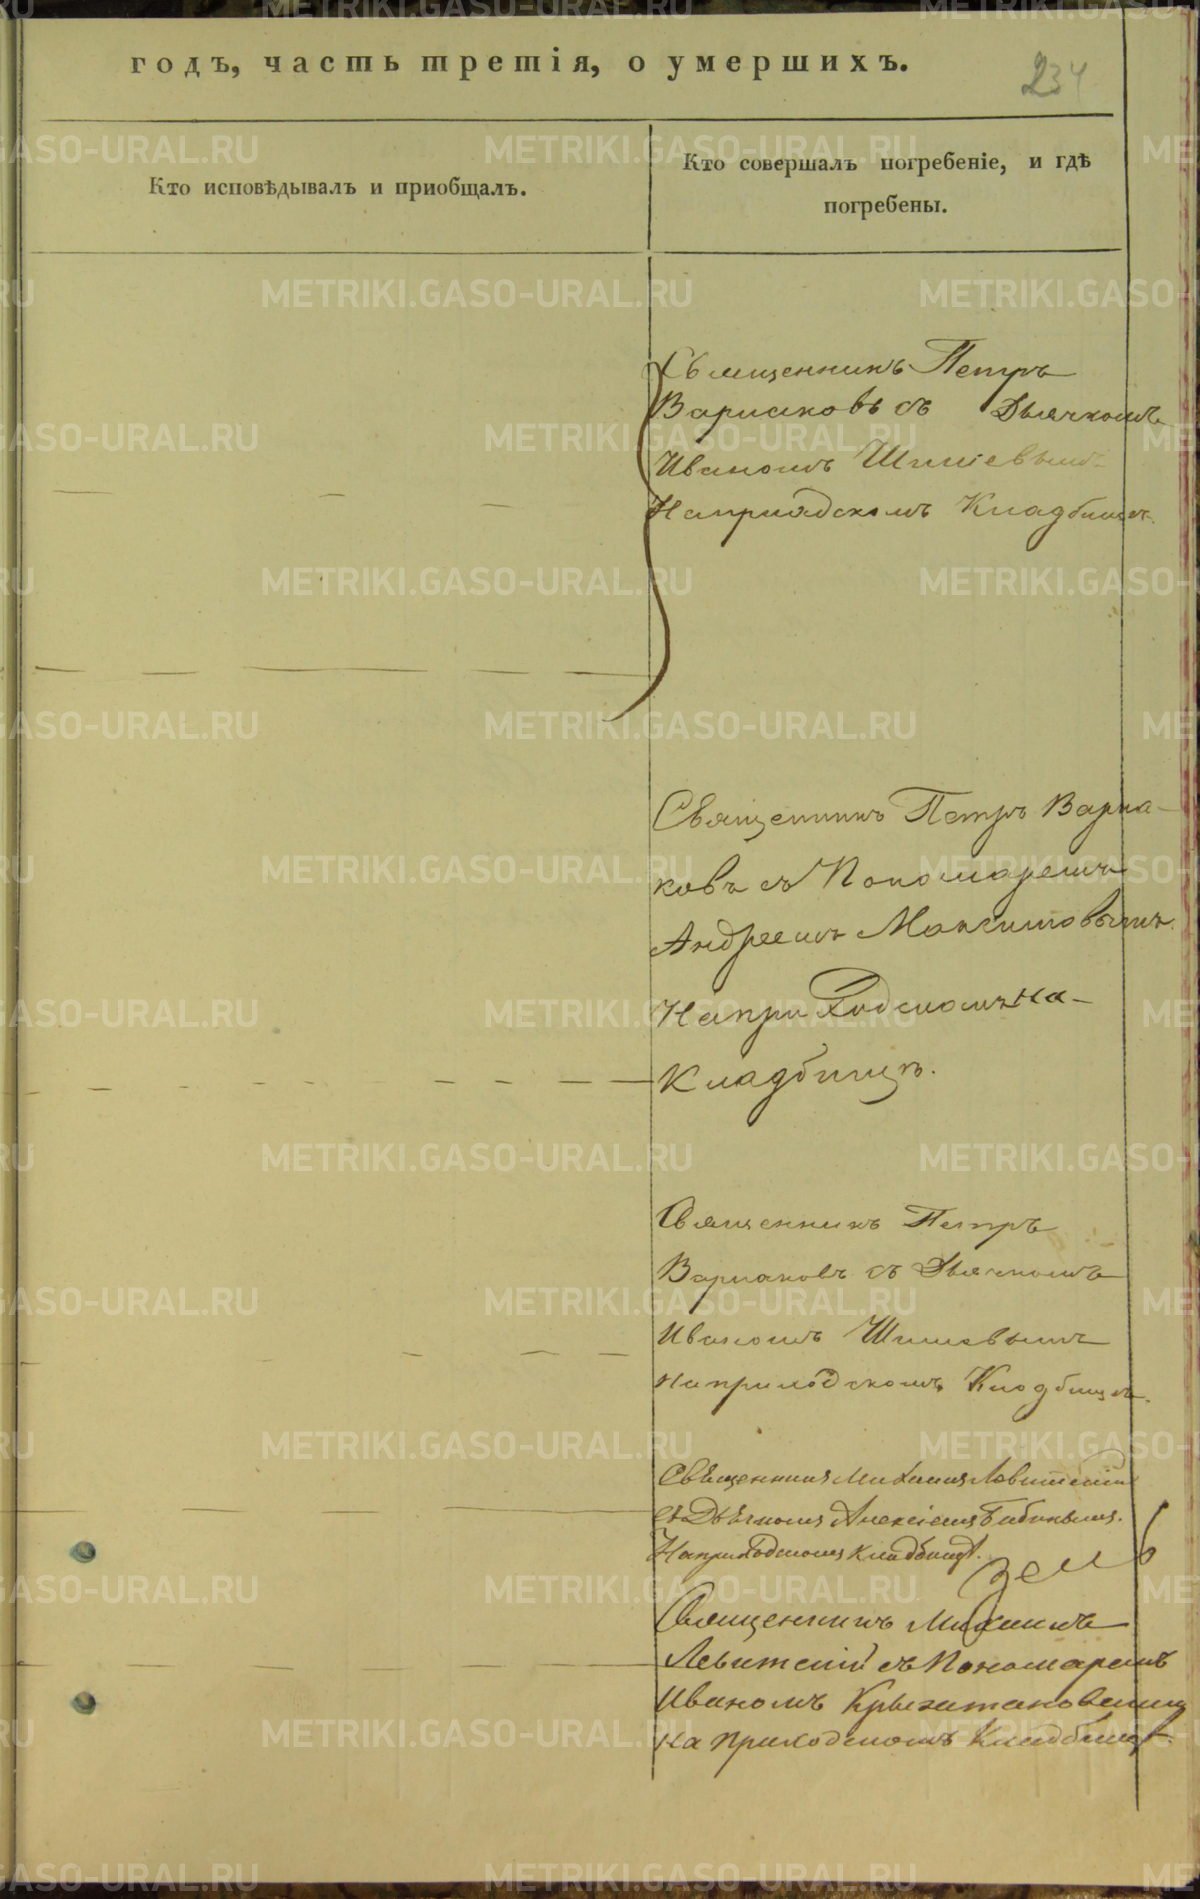 годъ, часть третія, о умершихъ.
234
Кто исповѣдывалъ и приобщалъ.
Кто совершалъ погребеніе, и гдѣ
погребены.
Священникъ Петръ
Варнаковъ съ Дьячкомъ
Иваномъ Шишевымъ
На приходскомъ Кладбищѣ.
Священникъ Петръ Варна-
ковъ съ Пономаремъ
Андреемъ Максимовымъ
На приходскомъ на-
Кладбищѣ.
Священникъ Петръ
Варнаковъ съ Дьячкомъ
Иваномъ Шишевымъ
на приходскомъ Кладбищѣ.
Священникъ Михаилъ Левитскій
съ Дьячкомъ Алексіемъ Бабинымъ.
На приходскомъ кладбищѣ.
Священникъ Михаилъ
Левитскій съ Пономаремъ
Иваномъ
на приходскомъ Кладбищѣ.
METRIKI.GASO-URAL.RU